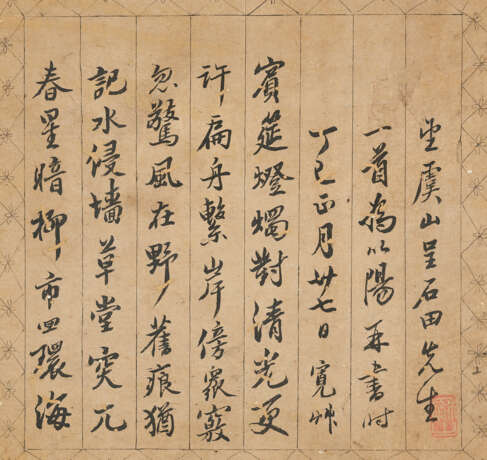 望虞山呈石田先生
一首為以陽再書時
丁巳正月廿七日 寬艸
賓筵燈燭對清光更
許扁舟繫岸傍眾竅
忽驚風在野舊痕猶
記水侵墻草堂突兀
春星暗柳市回環海